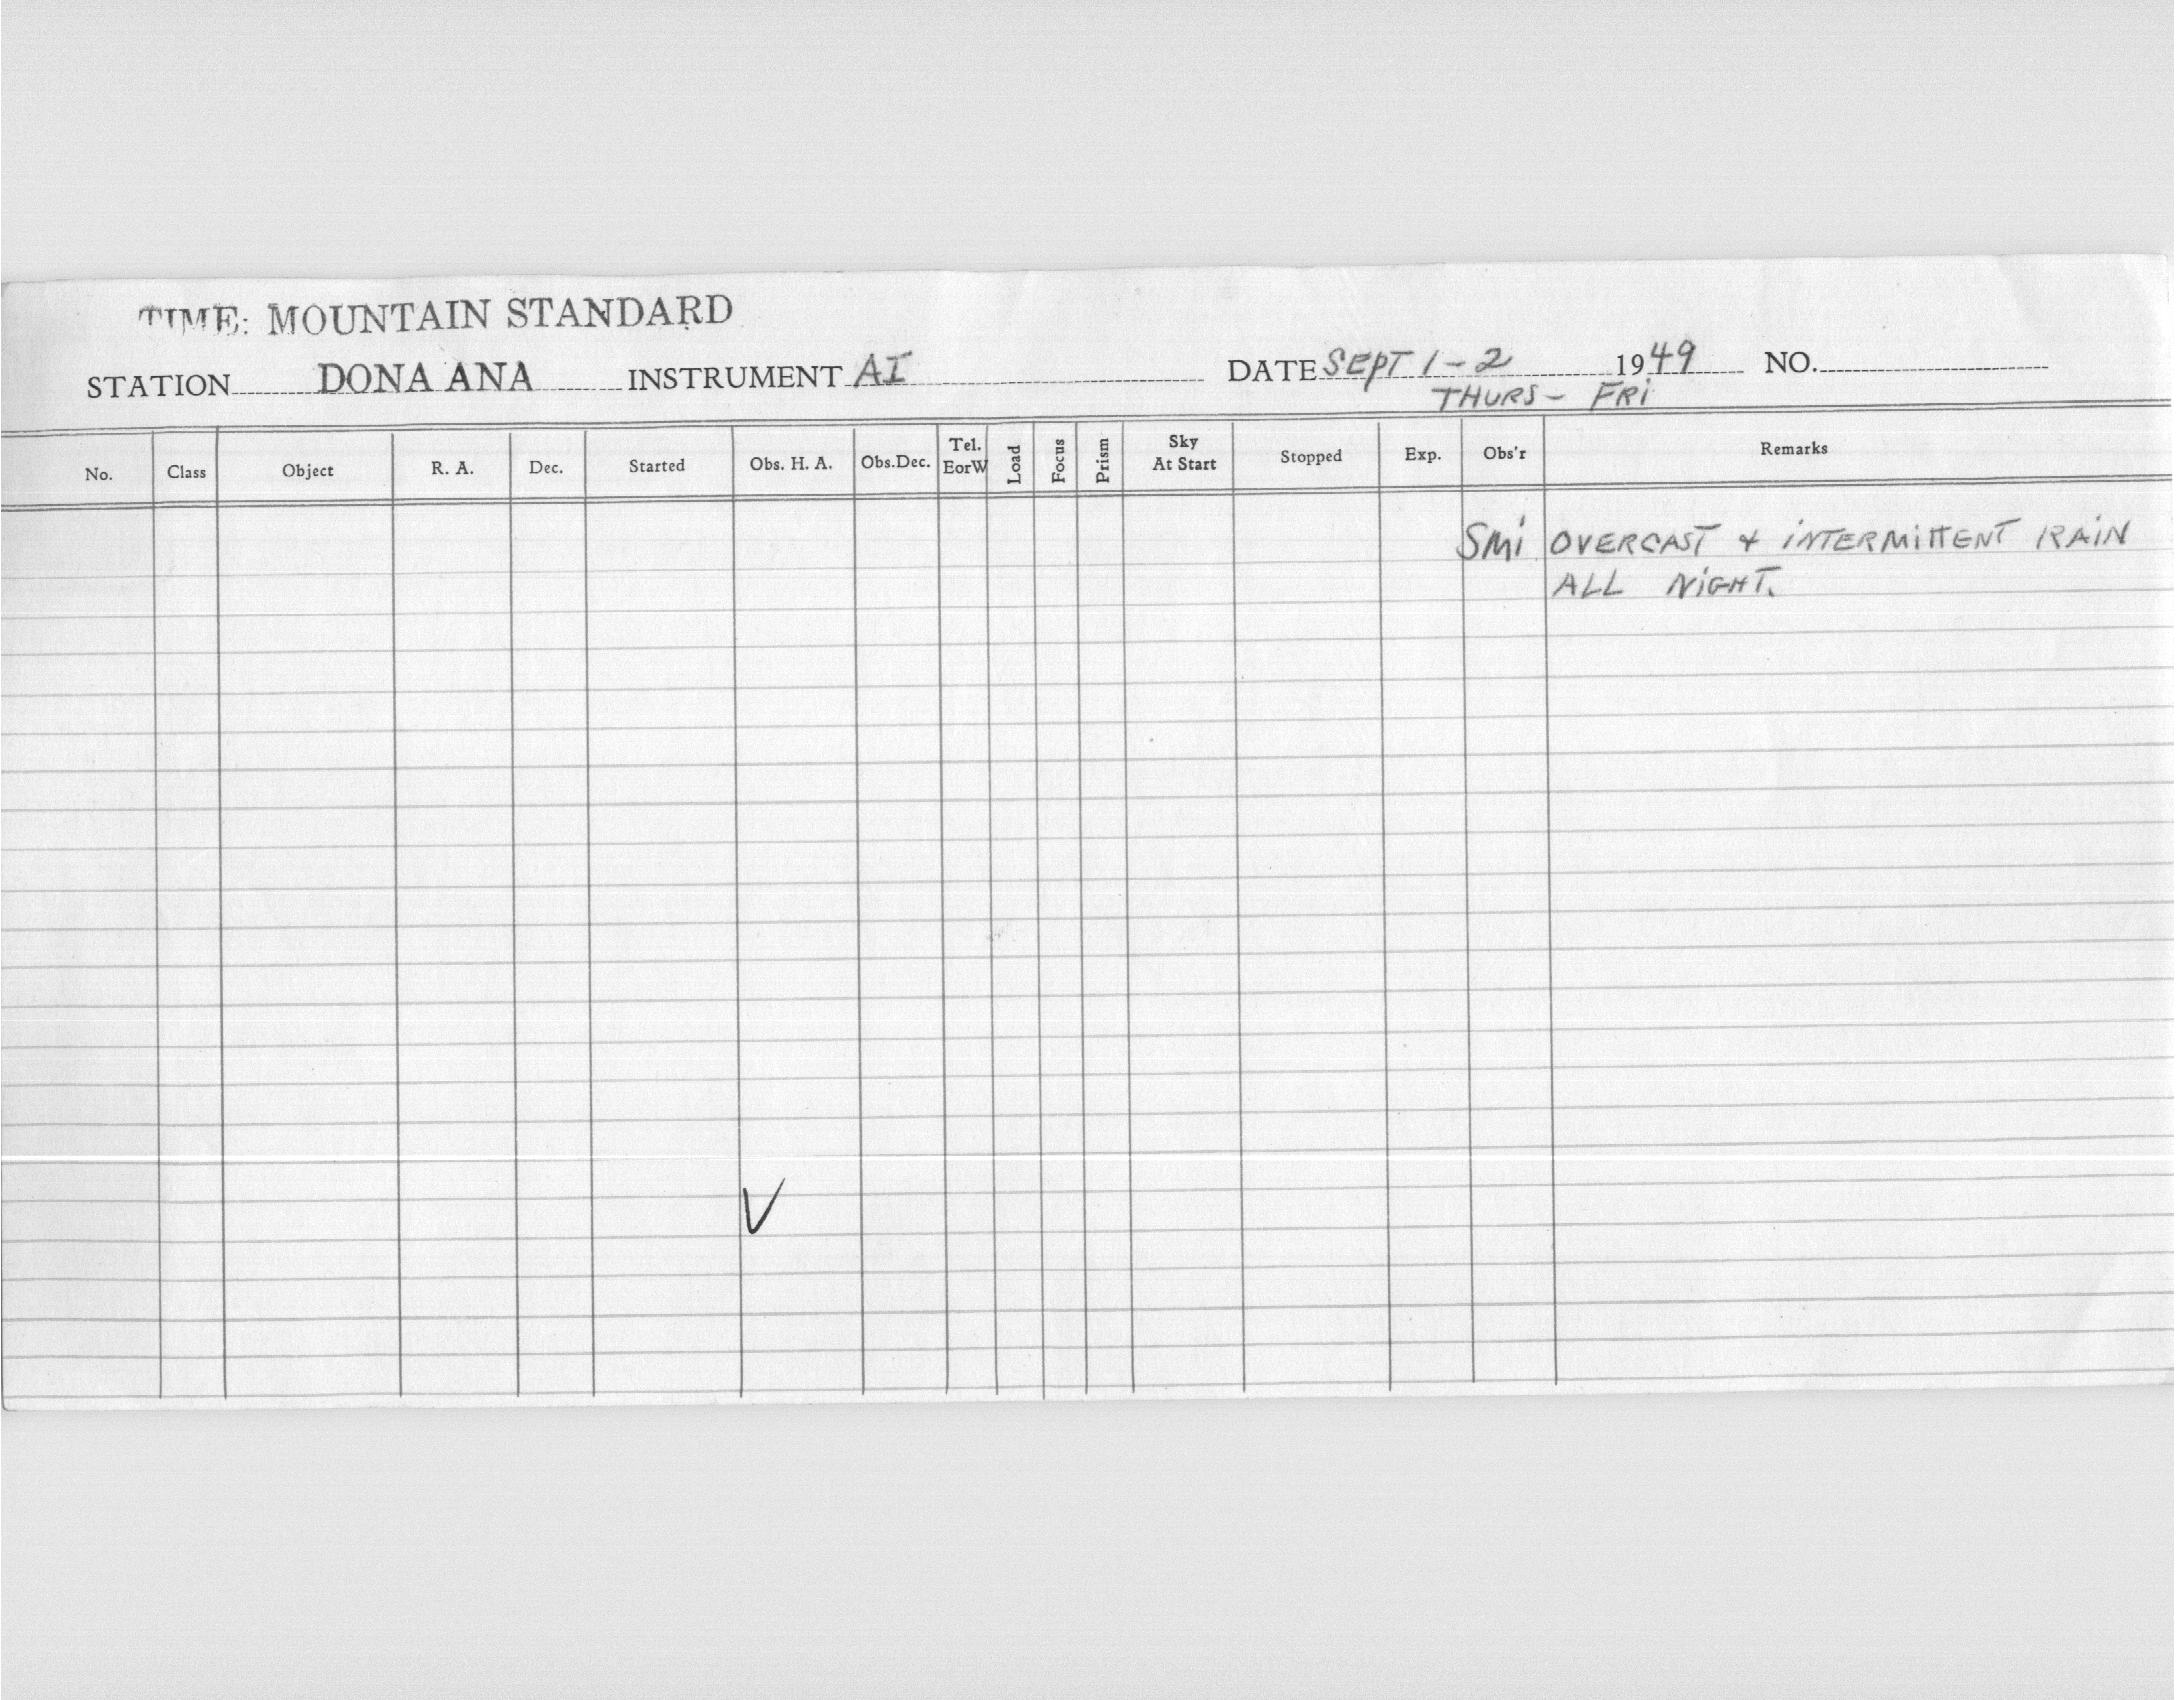 TIME: MOUNTAIN STANDARD
STATION DONA ANA INSTRUMENT AI DATE SEPT 1-2 1949 NO.
THURS - FRI
No. Class Object R. A. Dec. Started Obs. H. A. Obs.Dec. Tel. EorW Load Focus Prism Sky At Start Stopped Exp. Obs'r Remarks
SMi OVERCAST + INTERMITTENT RAIN
ALL NIGHT.
V